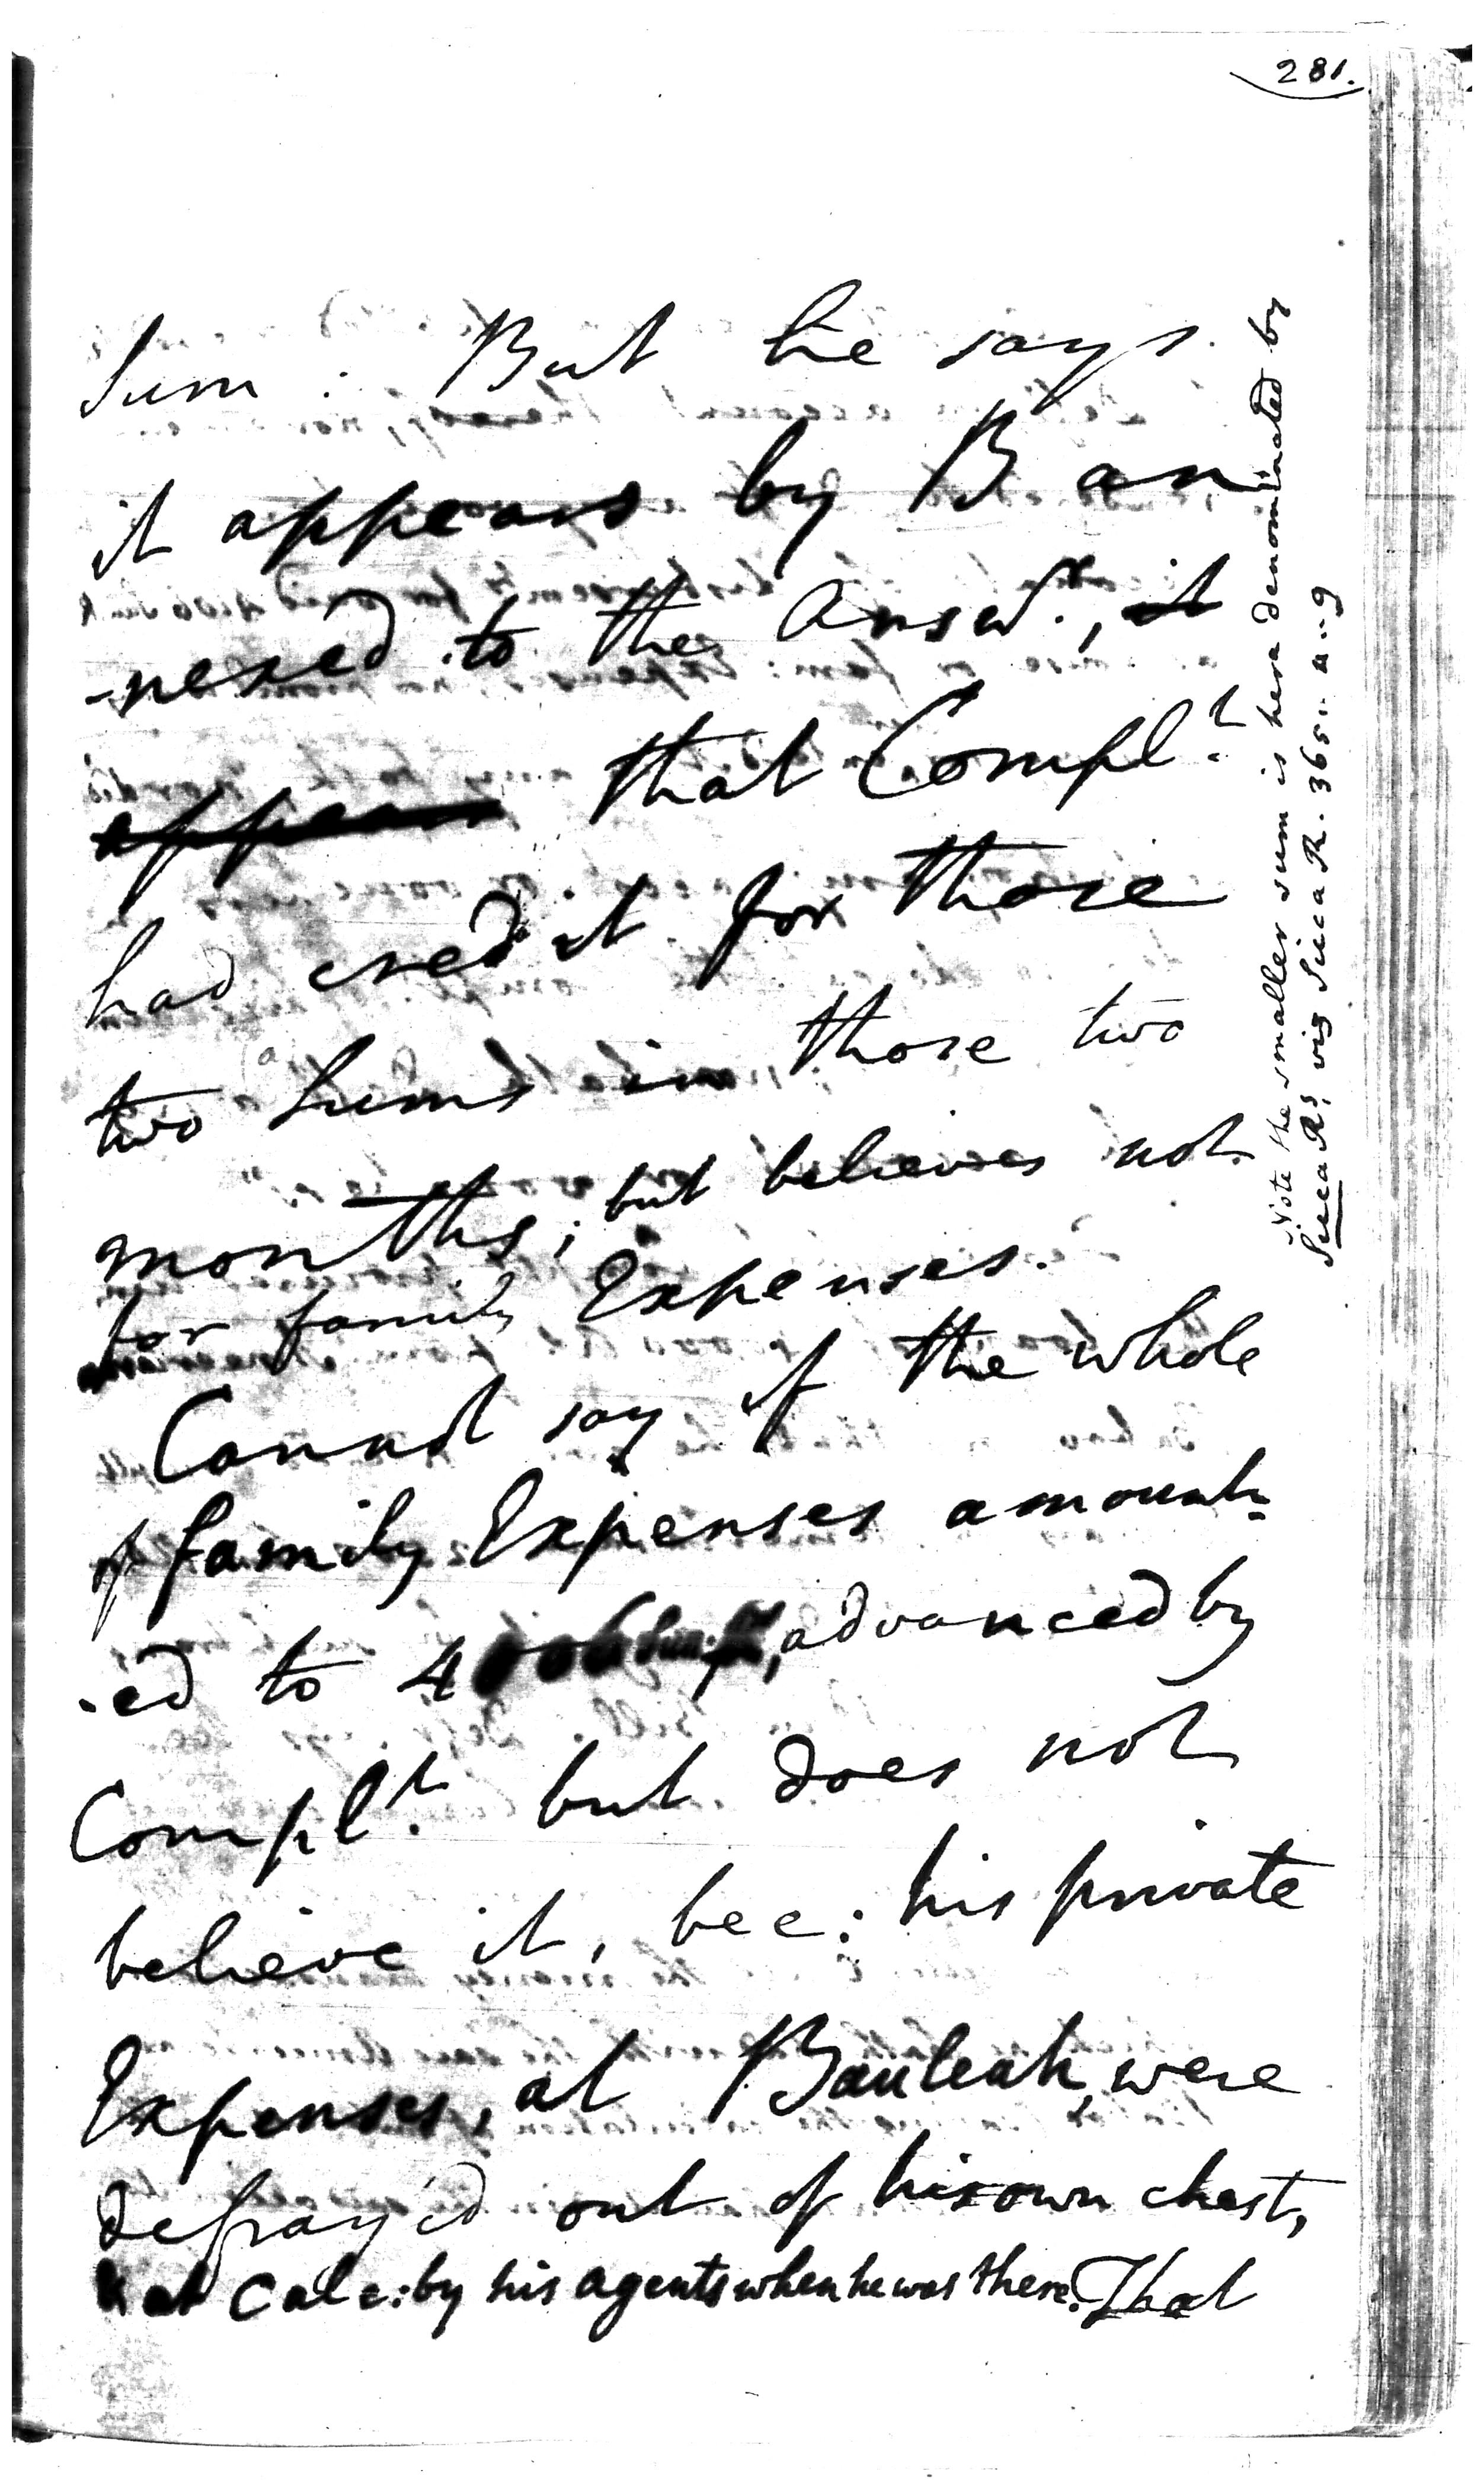 281.
Sum: But he says
it appears by B an
-nexed to the Answ.r, it
appears that Compl.t
had credit for those
two Sums (a) in those two
months; but believes not
for family Expenses.
Cannot say if the whole
of family Expenses amount-
-ed to 4 advanced by
Compl.t but does not
believe it, bec: his private
Expenses, at Bauleah, were
defray'd out of his own chest,
& at Calc: by his agents when he was there. That
Note the smaller sum is here denominated by
Sicca R.s, viz Sicca R. 365.. 11..9